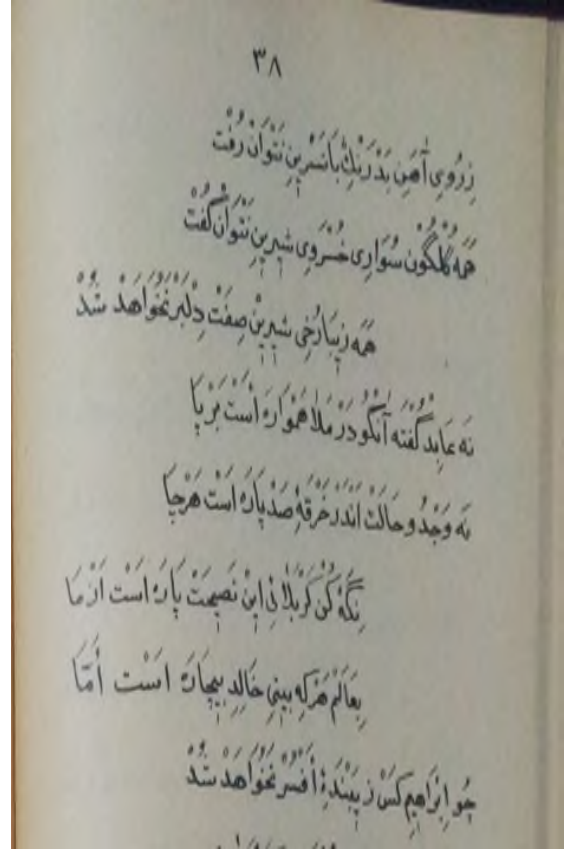 ۳۸
زِرُویِ آهَنِ بَدْرَنْكْ بَانَسْرِینِ نَتَوَانْ رُفْتْ
هَمَه گُلْگُونْ سُوَارِی خُسْرَوِی شِیرِینِ نَتَوَانْ گُفْتْ
هَمَه زِیبَارُخِی شِیرِینْ صِفَتْ دِلْبَرْ نَخْوَاهَدْ شُدْ
نَه عَابِدْ گُفْتَه آنْگُو دَرْ مَلَاْ هَمْوَارَه اَسْتْ بَرْپَا
نَه وَجْدُ و حَالَتْ اَنْدَرْ خِرْقَهٔ صَدْپَارَه اَسْتْ هَرْجَا
نِگَهْ كُنْ كَرْبَلَائِی اِینْ نَصِیحَتْ پَارَه اَسْتْ اَزْمَا
بِعَالَمْ هَرْكِه بِینِی خَالِدِ بِیچَارَه اَسْت أَمَّا
چُو اِبْرَاهِیمِ كَسْ زِیبَنْدَهٔ أَفْسَرْ نَخْوَاهَدْ شُدْ